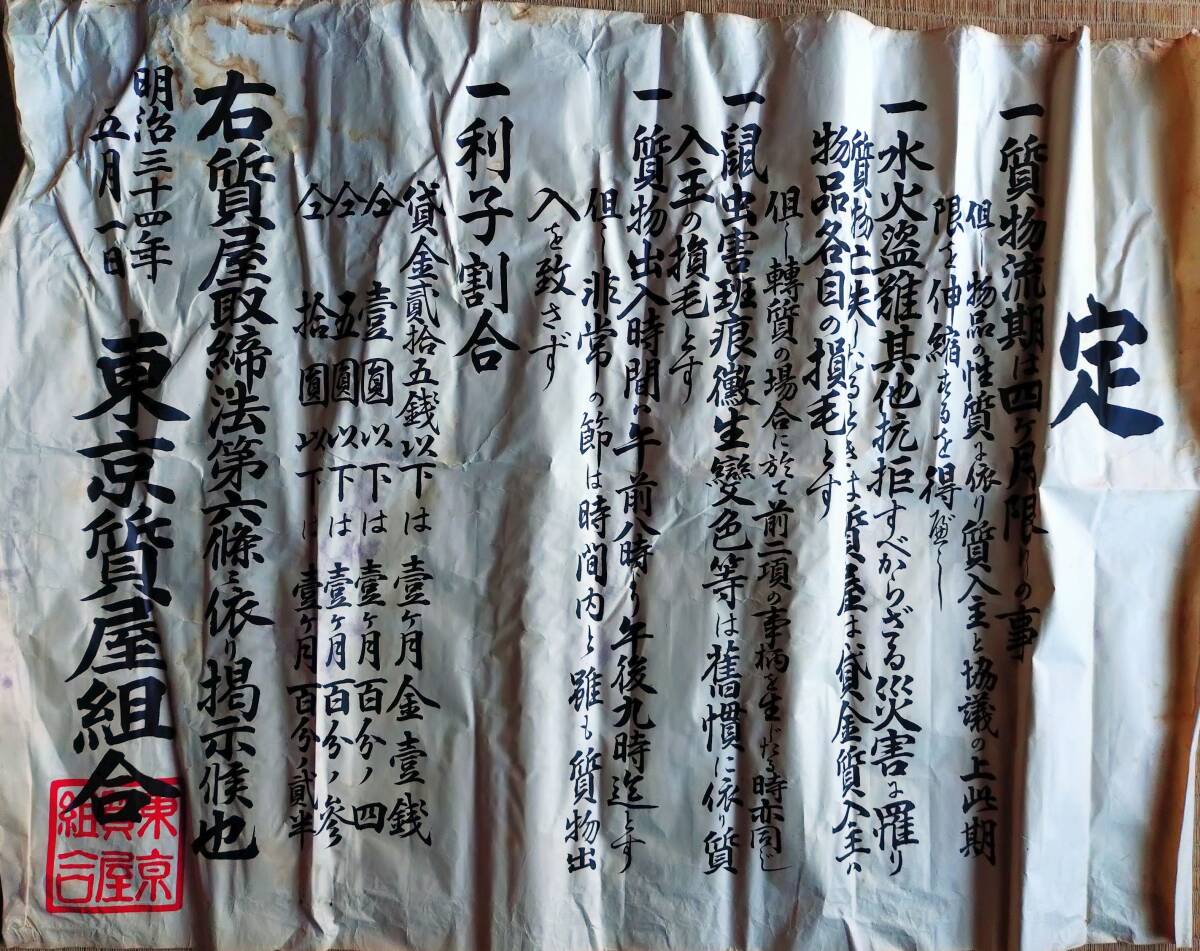 定
一質物流期は四ケ月限りの事
但し物品の性質に依り質入主と協議の上此期
限を伸縮するを得べし
一水火盜難其他抗拒すべからざる災害に罹り
質物亡失したるときは質屋は貸金質入主ハ
物品各自の損毛とす
但し轉質の場合に於て前二項の事柄を生じたる時亦同じ
一鼠虫害班痕黴生變色等は舊慣に依り質
入主の損毛とす
一質物出入時間ハ午前八時ゟ午後九時迄とす
但し非常の節は時間内と雖も質物出
入を致さず
一利子割合
貸金貳拾五錢以下は壹ケ月金壹錢
仝壹圓以下は壹ケ月百分ノ四
仝五圓以下は壹ケ月百分ノ參
仝拾圓以下は壹ケ月百分ノ貳半
右質屋取締法第六條ニ依り揭示候也
明治三十四年
五月一日
東京質屋組合
東京質屋組合